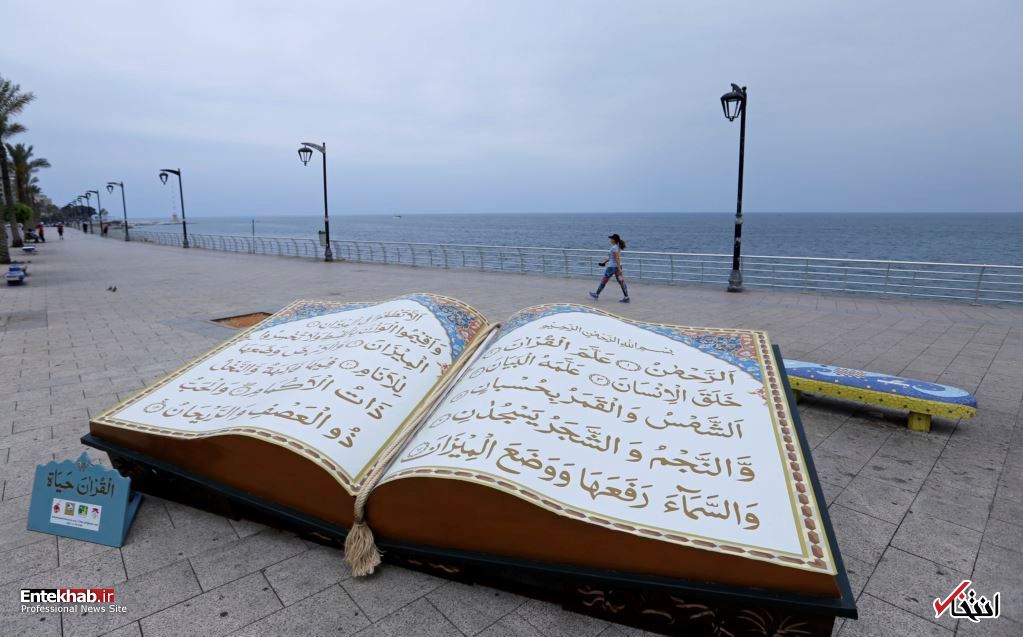 بِسْمِ اللهِ الرَّحْمٰنِ الرَّحِيْمِ
الرَّحْمٰنُ ١ عَلَّمَ الْقُرْاٰنَ ٢
خَلَقَ الْاِنْسَانَ ٣ عَلَّمَهُ الْبَيَانَ ٤
اَلشَّمْسُ وَالْقَمَرُ بِحُسْبَانٍ ٥
وَّالنَّجْمُ وَالشَّجَرُ يَسْجُدٰنِ ٦
وَالسَّمَآءَ رَفَعَهَا وَوَضَعَ الْمِيْزَانَ ٧
اَلَّا تَطْغَوْا فِى الْمِيْزَانِ ٨
وَاَقِيْمُوا الْوَزْنَ بِالْقِسْطِ وَلَا تُخْسِرُوا
الْمِيْزَانَ ٩ وَالْاَرْضَ وَضَعَهَا
لِلْاَنَامِ ١٠ فِيْهَا فَاكِهَةٌ وَّالنَّخْلُ
ذَاتُ الْاَكْمَامِ ١١ وَالْحَبُّ
ذُو الْعَصْفِ وَالرَّيْحَانُ ١٢
الْقُرْآنُ حَيَاةٌ
Entekhab.ir
Professional News Site
انتخاب